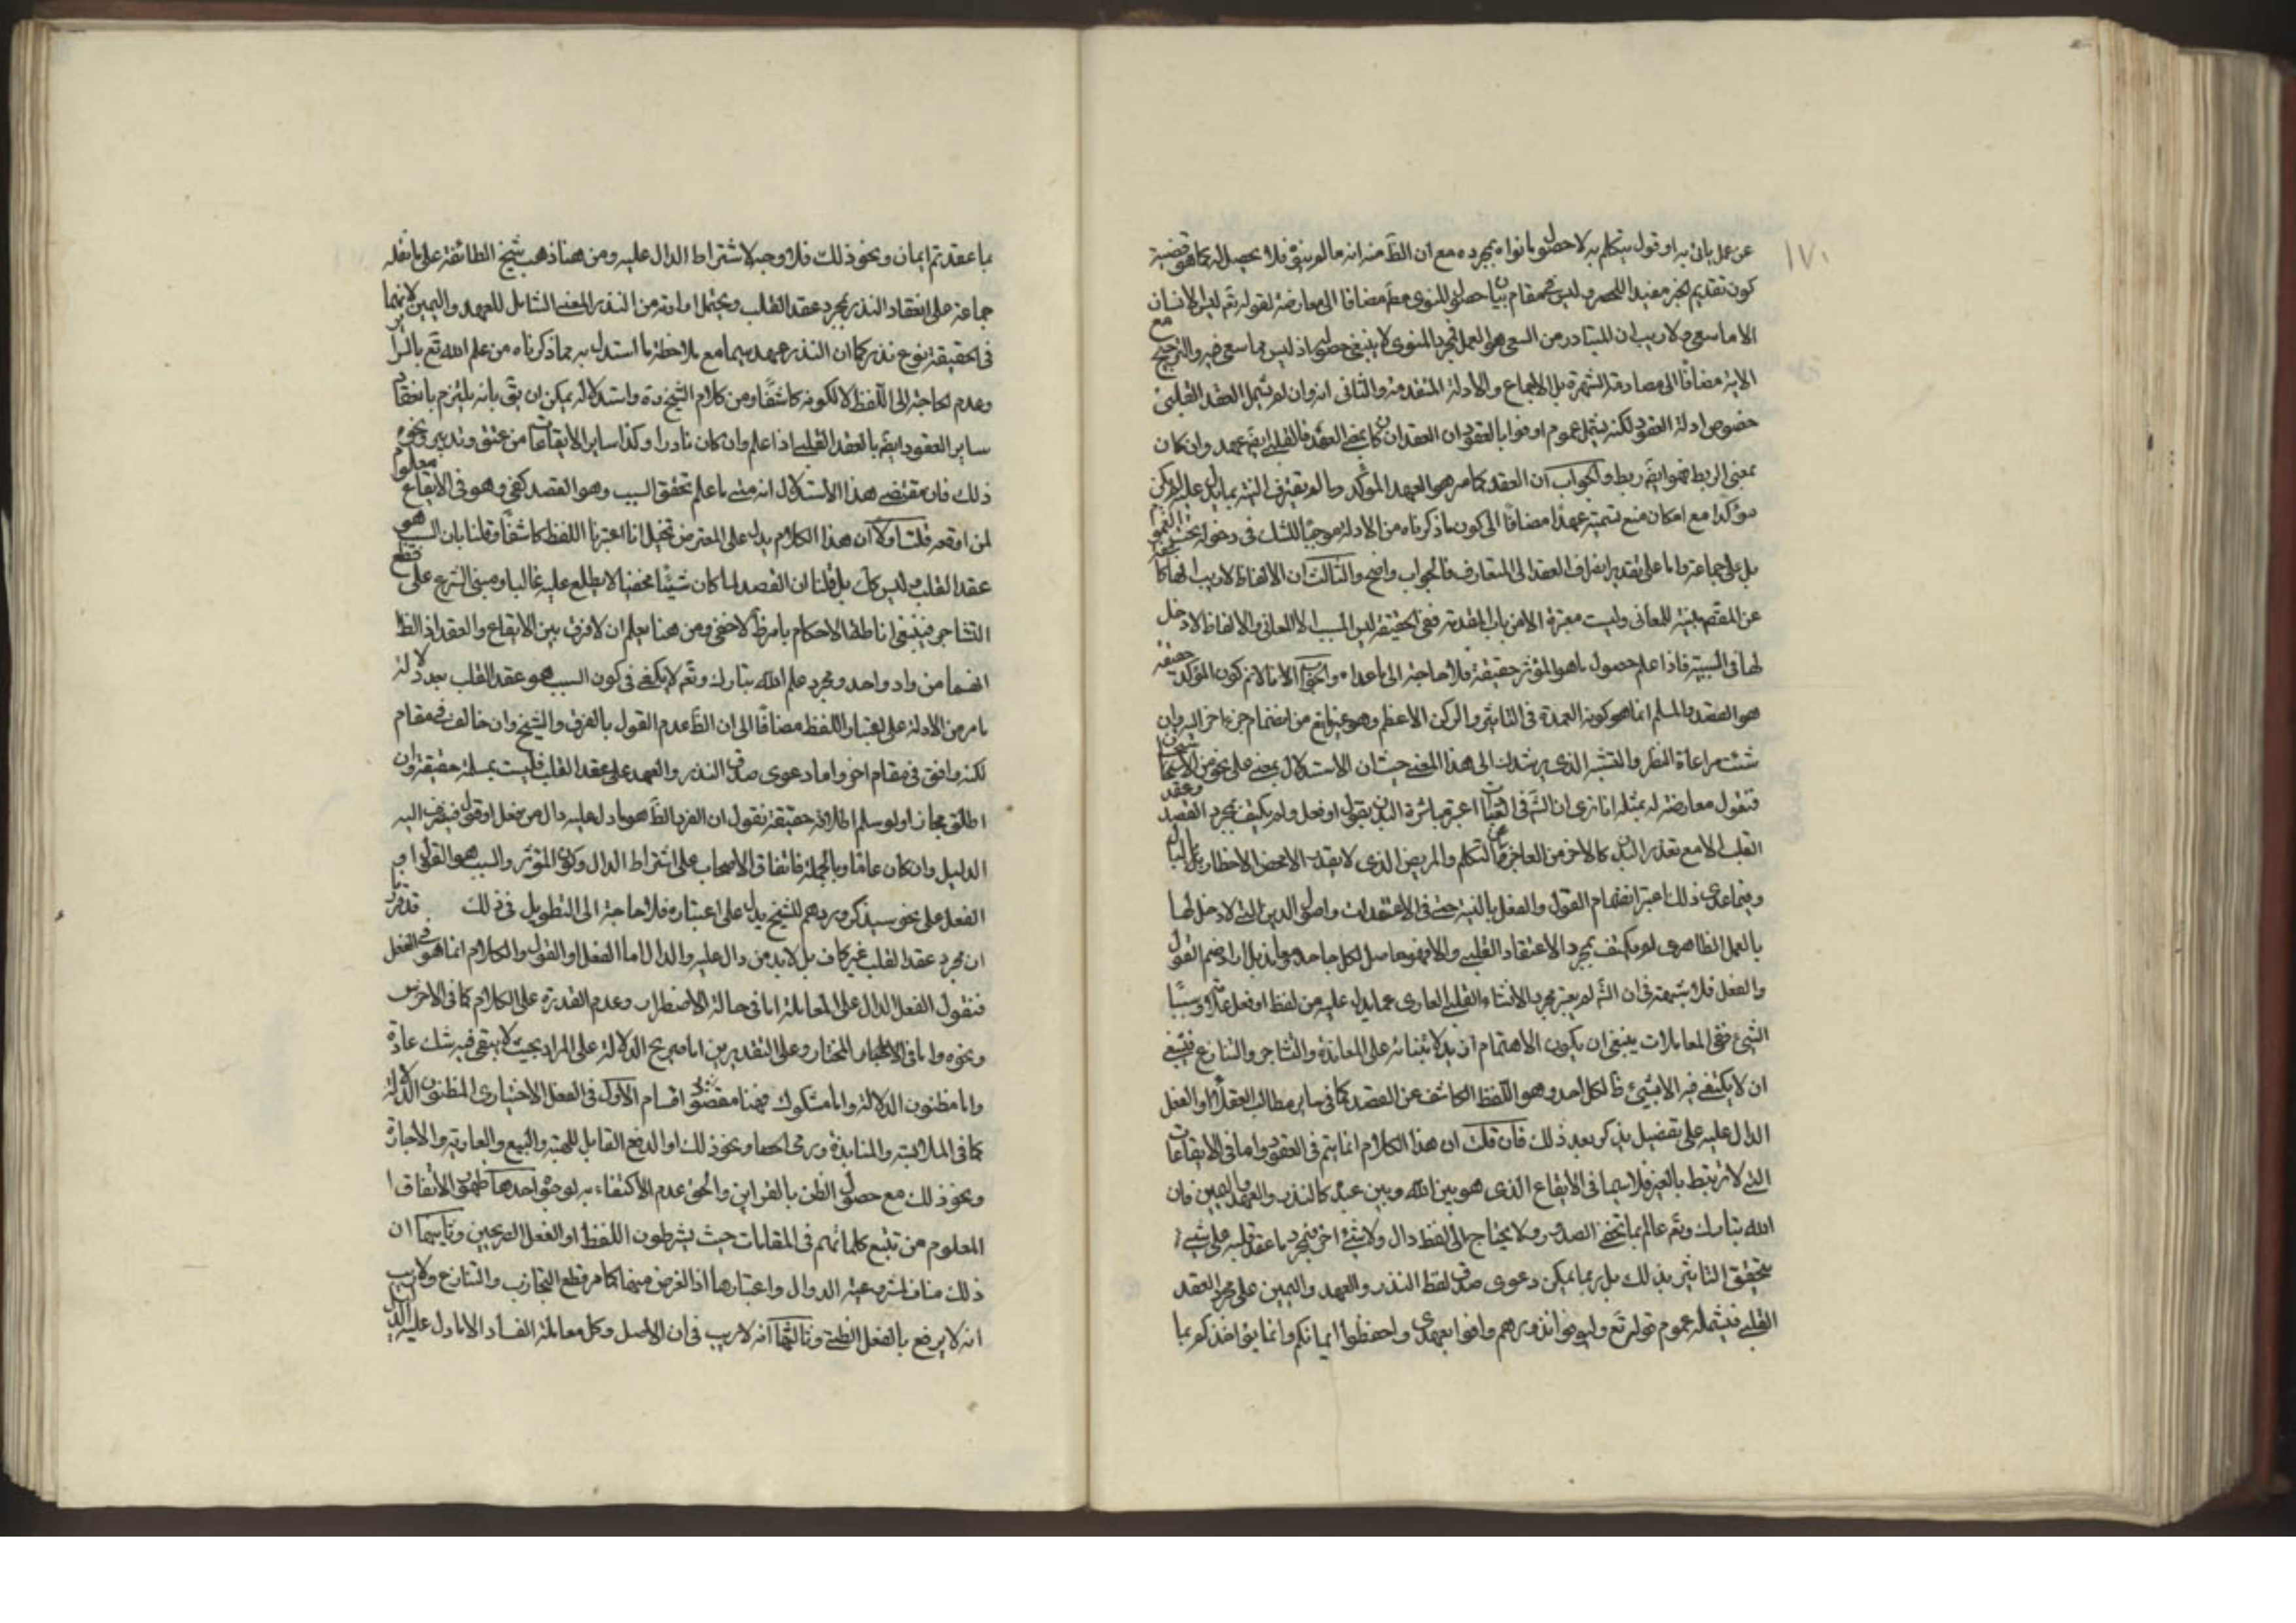 ١٧٠
عن عمل يأتى به او قول يتكلم به لا حصول ما نواه بمجرده مع ان الظَ منه انه ما لم ينو فلا يحصل له كما هو قضية
كون تقديم الخبر مفيدا للحصر وليس فى مقام بيان حصول المنوى مطَ مضافا الى معارضته لقوله تَع ليس للانسان
الا ما سعى ولا ريب ان المتبادر من السعى هو العمل فمجرد المنوى لا ينبغى حصوله اذ ليس مما سعى فيه والترجيح مع
الاية مضافا الى مصادقة الشهرة بل الاجماع والادلة المتقدمة والثانى انه وان لم يشمل العقد القلبى
خصوص ادلة العقود لكنه يشمل عموم اوفوا بالعقود لان العقد ان كان بمعنى العهد فالقلبى ايضَ عهد وان كان
بمعنى الربط فهو ايضَ ربط والجواب ان العقد كما مر هو العهد الموكد وما لم يقترن النية بما يدل عليه لم يكن
موكدا مع امكان منع تسميته عهدا مضافا الى كون ما ذكرناه من الادلة موجبا للشك فى دخوله تحت العموم
بل على جماعة واما على تقدير انصراف العقد الى المتعارف فالجواب واضح والثالث ان الالفاظ لا ريب انها كاشفة
عن المقصد مبينة للمعانى وليست معتبرة الا من باب المقدمة ففى الحقيقة ليس السبب الا المعانى والالفاظ لا دخل
لها فى السببية فاذا علم حصول ما هو المؤثر حقيقة فلا حاجة الى ما عداه والجواب اولا انا لا نم كون المؤكد حقيقة
هو القصد والمسلم انما هو كونه العمدة فى التاثير والركن الاعظم وهو غير مانع من انضمام جزء اخر اليه وان
شئت مراعاة النظر والتتبع الذى يرشدك الى هذا المعنى حيث ان الاستدلال بمعنى على نحو من الاستحسان
فنقول معارضة له بمثله انا نرى ان الشَ فى العبادات اعتبر مباشرة البدن بقول او فعل ولم يكتف بمجرد القصد وعقد
القلب الا مع تعذر البدل كالاخرس العاجز عن التكلم والمريض الذى لا يقدر الا محض الاخطار بالبال
وفيما عدى ذلك اعتبر انضمام القول والفعل بالنية حتى فى الاعتقادات واصول الدين التى لا دخل لها
بالعمل الظاهرى لم يكتف بمجرد الاعتقاد القلبى والا فهو حاصل لكل جاحد ومعاند بل اراد ضم القول
والفعل فلا شبهة فى ان الشَ لم يعتبر مجرد الانشاء القلبى العارى عما يدل عليه من لفظ او فعل علة وسببا
لشئ ففى المعاملات ينبغى ان يكون الاهتمام ازيد لابتنائه على المعاندة والتشاجر والتنازع فينبغى
ان لا يكتفى فيه الا بشئ ظاهر لكل احد وهو اللفظ الكاشف عن القصد كما فى ساير مطالب العقلاء او الفعل
الدال عليه على تفصيل يذكر بعد ذلك فان قلت ان هذا الكلام انما يتم فى العقود واما فى الايقاعات
التى لا ترتبط بالغير فلا سيما فى الايقاع الذى هو بين الله وبين عبده كالنذر والعهد واليمين فان
الله تبارك وتَع عالم بما تخفى الصدور ولا يحتاج الى لفظ دال ولا شئ اخر فمجرد ما عقد قلبه على شئ
يتحقق التاثير بذلك بل ربما يمكن دعوى صدق لفظ النذر والعهد واليمين على مجرد العقد
القلبى فيشمله عموم قوله تَع وليوفوا نذورهم واوفوا بعهدى واحفظوا ايمانكم وانما يؤاخذكم بما
بما عقدتم الايمان ونحو ذلك فلا وجه لاشتراط الدال عليه ومن هنا ذهب شيخ الطائفة على ما نقله
جماعة على انعقاد النذر بمجرد عقد القلب ويحتمل ارادته من النذر المعنى الشامل للعهد واليمين لانهما
فى الحقيقة نوع نذر كما ان النذر عهد سيما مع ملاحظة ما استدل به مما ذكرناه من علم الله تَع بالسراير
وعدم الحاجة الى اللفظ الا لكونه كاشفا ومن كلام الشيخ ره واستدلاله يمكن ان يقَ بانه يلتزم بانعقاد
ساير العقود ايضَ بالعقد القلبى اذا علم وان كان نادرا وكذا ساير الايقاعات من عتق وتدبير ونحو
ذلك فان مقتضى هذا الاستدلال انه متى ما علم تحقق السبب وهو القصد كفى وهو فى الايقاع معلوم
لمن اوقعه قلت اولا ان هذا الكلام يدل على المعترض تخيل انا اعتبرنا اللفظ كاشفا وقلنا بان السبب هو
عقد القلب وليس كك بل قلنا ان القصد لما كان شيئا مخفيا لا يطلع عليه غالبا ومبنى الشرع على قطع
التشاجر فينبغى اناطة الاحكام بامر ظَ لا خفى ومن هنا يعلم ان لا فرق بين الايقاع والعقد اذ الظَ
انهما من واد واحد ومجرد علم الله تبارك وتَع لا يكفى فى كون السبب هو عقد القلب بعد دلالة
ما مر من الادلة على اعتبار اللفظ مضافا الى ان الظَ عدم القول بالفرق والشيخ وان خالف فى مقام
لكنه وافق فى مقام اخر واما دعوى صدق النذر والعهد على عقد القلب فليست بمسلمة حقيقة وان
اطلق مجازا ولو سلم اطلاقه حقيقة نقول ان الفرد الظَ هو ما دل عليه دال من فعل او قول فينصرف اليه
الدليل وان كان عاما وبالجملة فاتفاق الاصحاب على اشتراط الدال وكون المؤثر والسبب هو القول او
الفعل على نحو سيذكر وردهم للشيخ يدل على اعتباره فلا حاجة الى التطويل فى ذلك قد مر
ان مجرد عقد القلب غير كاف بل لا بد من دال عليه والدال اما الفعل او القول والكلام انما هو فى الفعل
فنقول الفعل الدال على المعاملة اما فى حالة الاضطرار وعدم القدرة على الكلام كما فى الاخرس
ونحوه واما فى الاختيار وعلى التقديرين اما صريح الدلالة على المراد بحيث لا يبقى فيه شك عادة
واما مظنون الدلالة واما مشكوك فهنا اقسام الاول فى الفعل الاختيارى المظنون الدلالة
كما فى الملامسة والمنابذة ورمى الحصا ونحو ذلك او الدفع القابل للهبة والبيع والعارية والاجارة
ونحو ذلك مع حصول الظن بالقراين والحق عدم الاكتفاء به لوجوه احدها ظهور الاتفاق
المعلوم من تتبع كلماتهم فى المقامات حيث يشترطون اللفظ او الفعل الصريحين وثانيهما ان
ذلك مناف لشرعية الدوال واعتبارها اذ الغرض منها كما مر قطع التجاذب والتنازع ولا ريب
انه لا يرفع بالفعل الظنى وثالثها انه لا ريب فى ان الاصل فى كل معاملة الفساد الا ما دل عليه الدليل